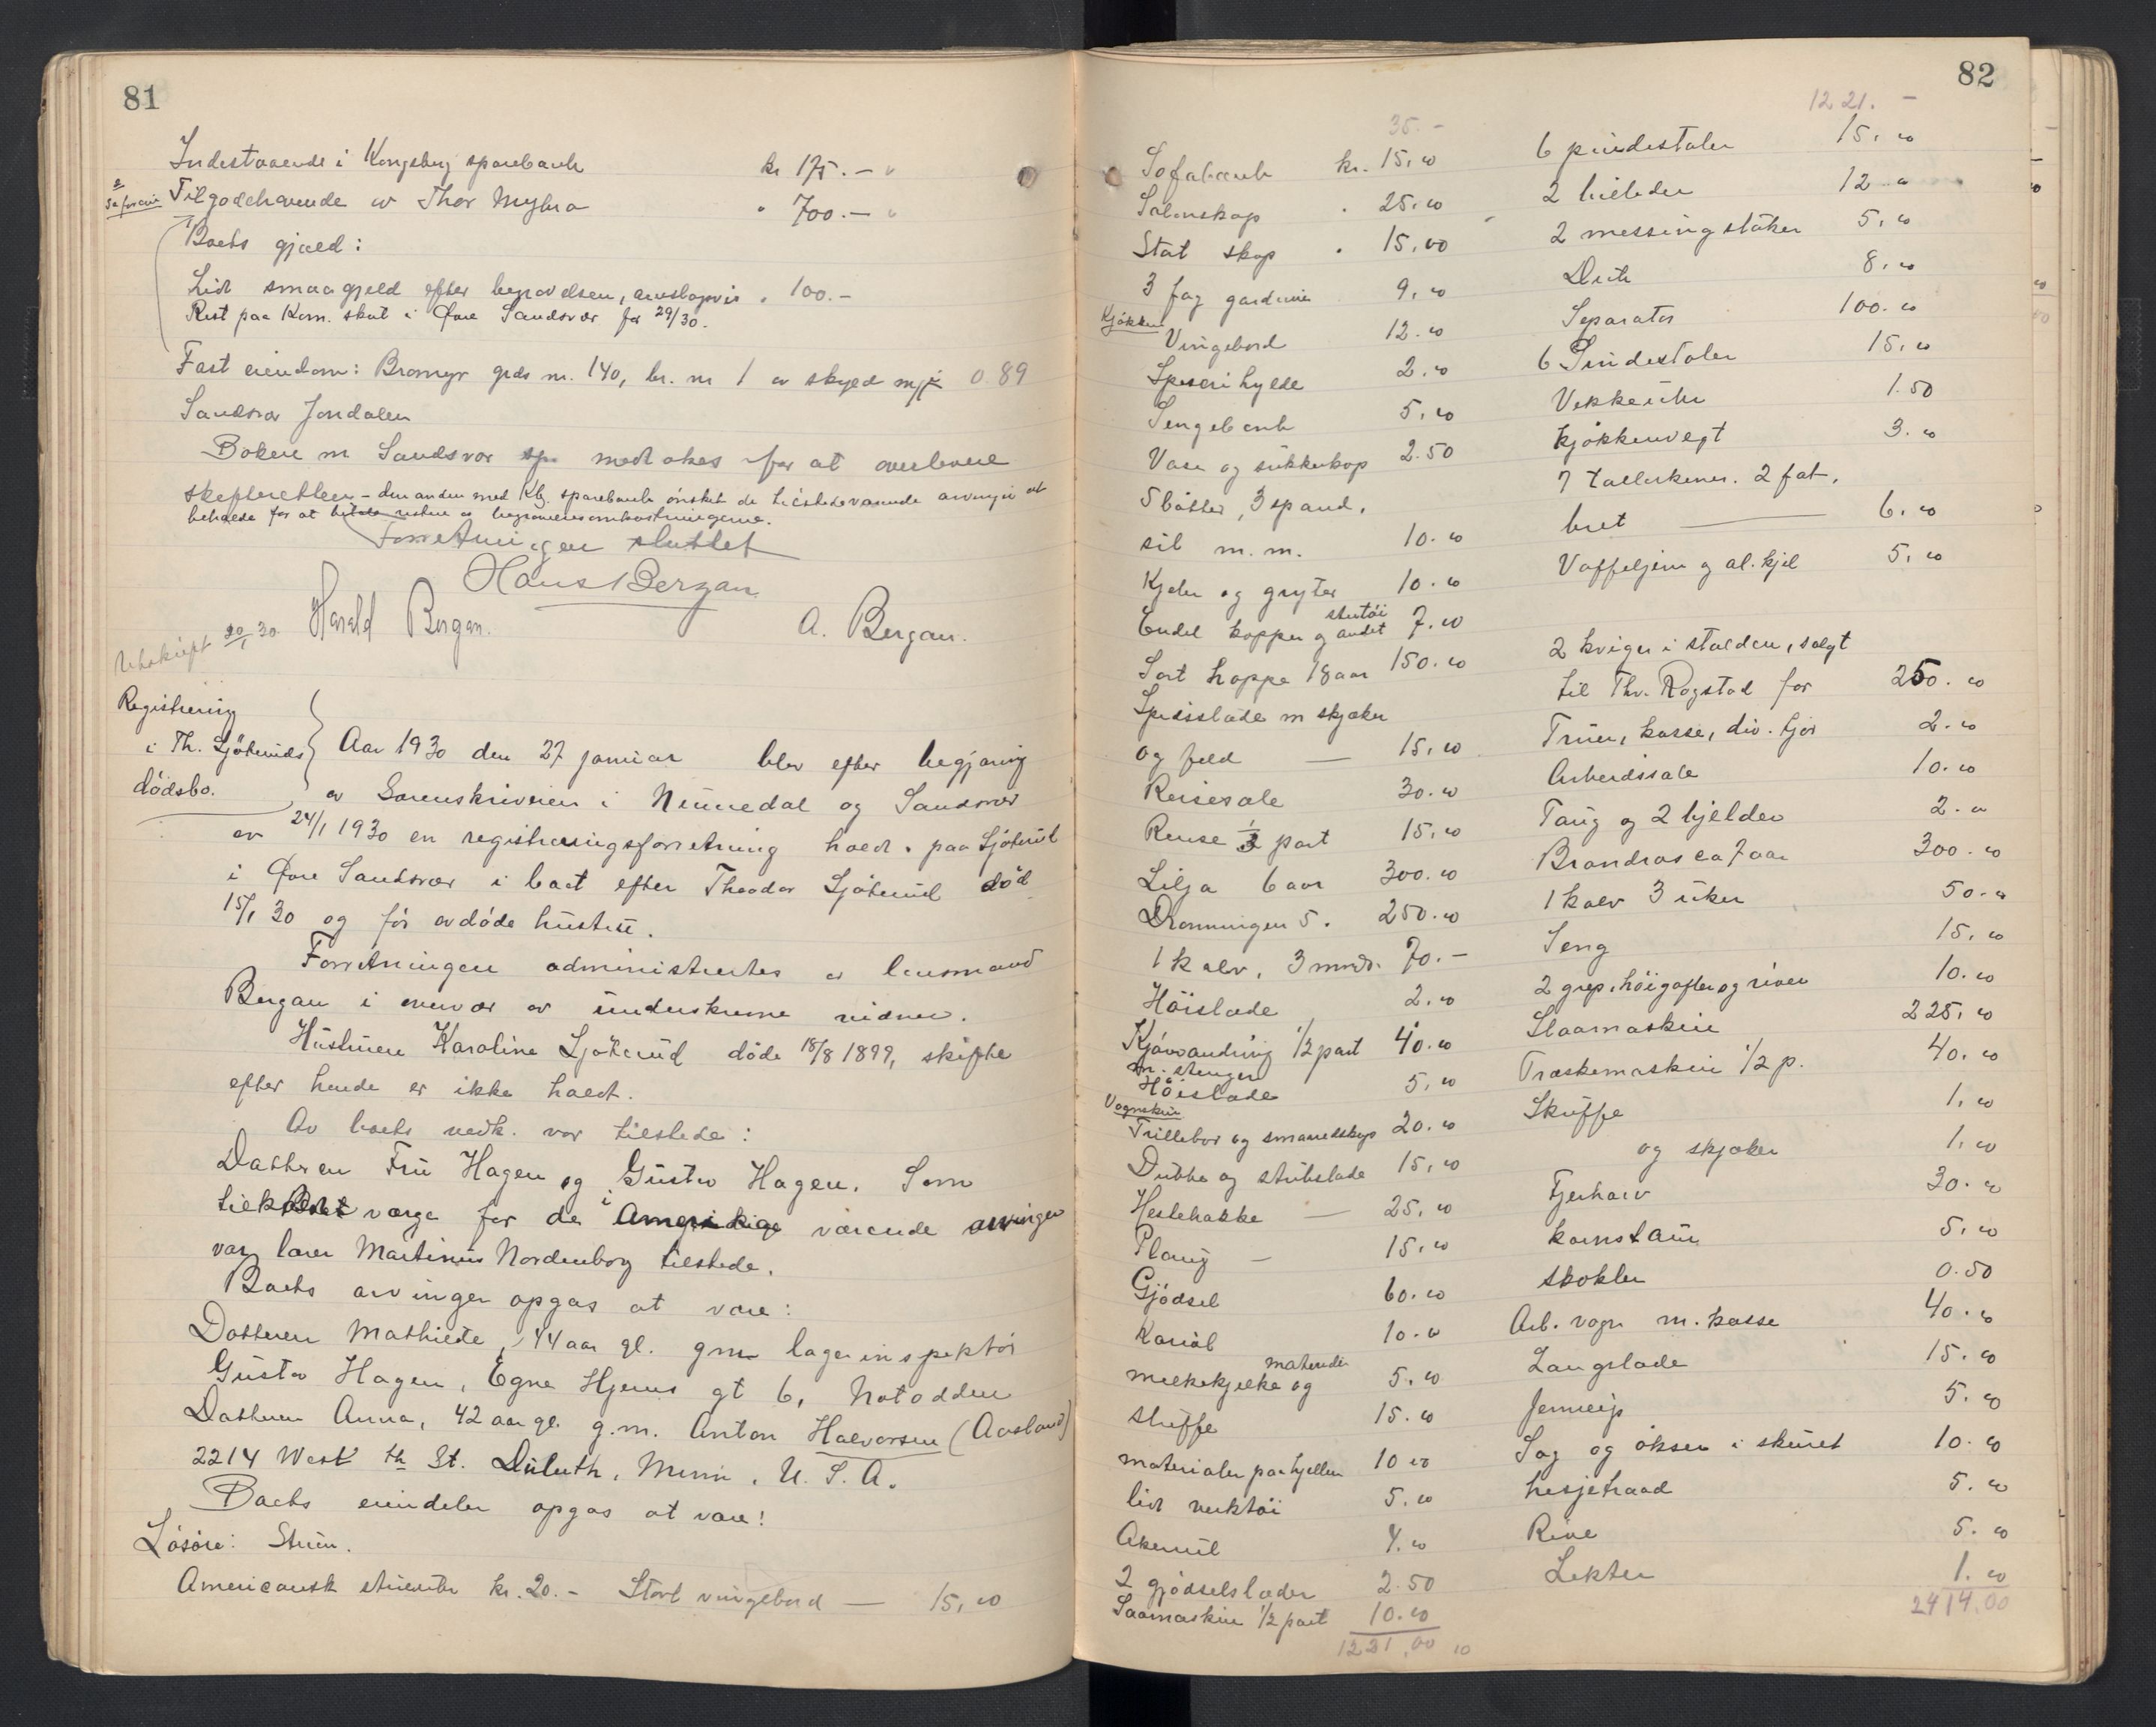 81
Indestaaende i Kongsberg sparebank kr 175.-
Tilgodehavende av Thor Myhra " 700.-
Boets gjæld:
Lidt smaagjeld efter begravelsen, anslagsvis " 100.-
Rest paa Kom. skat i Øvre Sandsvær for 29/30.
Fast eiendom: Bromyr grds nr. 140, br. nr 1 av skyld 0.89
Sandsvær Jondalen
Boken m Sandsvær sp. medtokes for at overlevere
skifteretten - den anden med Kbg. sparebank ønsket de tilstedeværende arvinger at
beholde for at betale resten av begravelsesomkostningerne.
Forretningen sluttet
Hans Bergan
Harald Bergan. A. Bergan.
Utskrift 30/1 30
Registrering
i Th. Sjöteruds
dödsbo.
Aar 1930 den 27 januar blev efter begjæring
av Sorenskriveren i Numedal og Sandsvær
av 24/1 1930 en registreringsforretning holdt paa Ljöterud
i Øvre Sandsvær i boet efter Theodor Ljöterud död
15/1 30 og för avdöde hustru.
Forretningen administrertes av lensmand
Bergan i overvær av underskrevne vidner.
Hustruen Karoline Ljöterud döde 18/8 1899, skifte
efter hende er ikke holdt.
Av boets vedk. var tilstede:
Datteren Fru Hagen og Gustav Hagen. Som
tilkaldt værge for de i Amerika værende arvinger
var lærer Martinius Nordenborg tilstede.
Boets arvinger opgas at være:
Datteren Mathilde, 44 aar gl. gm lagerinspektör
Gustav Hagen, Egne Hjems gt 6, Notodden
Datteren Anna, 42 aar gl. g.m. Anton Halvorsen (Aasland)
2214 West th St. Duluth, Minn, U.S.A.
Boets eiendeler opgas at være:
Lösöre: Stuen.
Americansk stueuhr kr. 20.- Stort vingebord — 15,00
82
35.-
Sofabænk kr. 15,00
Salenskap " 25,00
Stort skap " 15,00
3 fag gardiner 9,00
Kjøkken
Vingebord 12.00
Speserihylde 2.00
Sengebenk 5,00
Vase og sukkerkop 2.50
5 bötter, 3 spand,
sil m.m. 10.00
Kjeler og gryter 10.00
Endel kopper og andet stentöi 7.00
Sort hoppe 18 aar 150.00
Spidsslæde m skjæker
og feld — 15,00
Reisesæle 30.00
Rense 1/3 part 15,00
Lilja 6 aar 300.00
Dronningen 5 " 250.00
1 kalv, 3 mndr. 70.-
Höislæde 2.00
Kjörvandring 1/2 part 40.00
m. stenger
Höislæde 5,00
Vognskur
Trillebor og smaredskap 20.00
Dubbe og stubslæde 15,00
Hestehakke — 25,00
Plaug — 15,00
Gjödsel 60.00
Kariol 10.00
melkekjelke og materialer 5,00
Sluffe 15.00
materialer paa hjellen 10 00
lidt verktöi 5.00
Akerrul 4.00
2 gjödselslæder 2.50
Saamaskin 1/2 part 10.00
1221,00
1221.-
6 pindestoler 15,00
2 billeder 12.00
2 messingstaker 5,00
Duk 8,00
Separator 100.00
6 Pindestoler 15,00
Vekkeuhr 1.50
Kjökkenvegt 3.00
7 tallerkener. 2 fat,
bret — 6.00
Vaffeljern og al. kjel 5,00
2 kviger i stalden, solgt
til Thv. Rogstad for 250.00
Truer, kasse, div. Gjör 2.00
Arbeidssæle 10.00
Taug og 2 bjelder 2.00
Brandros ca 7 aar 300.00
1 kalv 3 uker 50.00
Seng 15,00
2 grep, höigafler og river 10.00
Slaamaskin 225,00
Træskemaskin 1/2 p. 40.00
Skuffe 1,00
og skjæker 1,00
Fjerharv 30.00
kornstaur 5,00
Skokler 0.50
Arb. vogn m. kasse 40.00
Langslæde 15.00
5.00
Sag og økser i skuret 10.00
hesjetraad 5.00
Rive 5.00
Lekter 1.00
2414.00